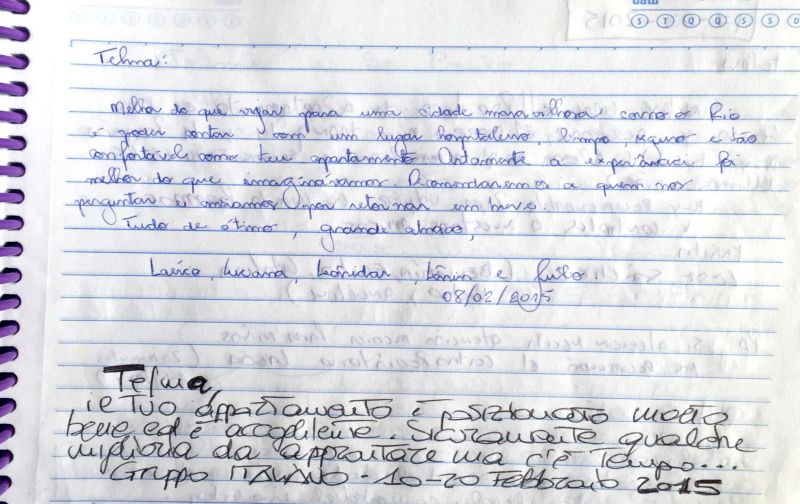 data
S T Q Q S S D
Telma:
Melhor do que viajar para uma cidade maravilhosa como o Rio
é poder contar com um lugar hospitaleiro, limpo, seguro e tão
confortável como teu apartamento. a experiência foi
melhor do que imaginávamos. Recomendaremos a quem nos
perguntar e ansiamos por retornar em breve.
Tudo de ótimo, grande abraço,
Luciana, Leônidas, e
08/02/2015
Telma,
il tuo appartamento è posizionato molto
bene ed è accogliente. Sicuramente qualche
miglioria da apportare ma c'è tempo...
Gruppo ITALIANO - 10-20 Febbraio 2015